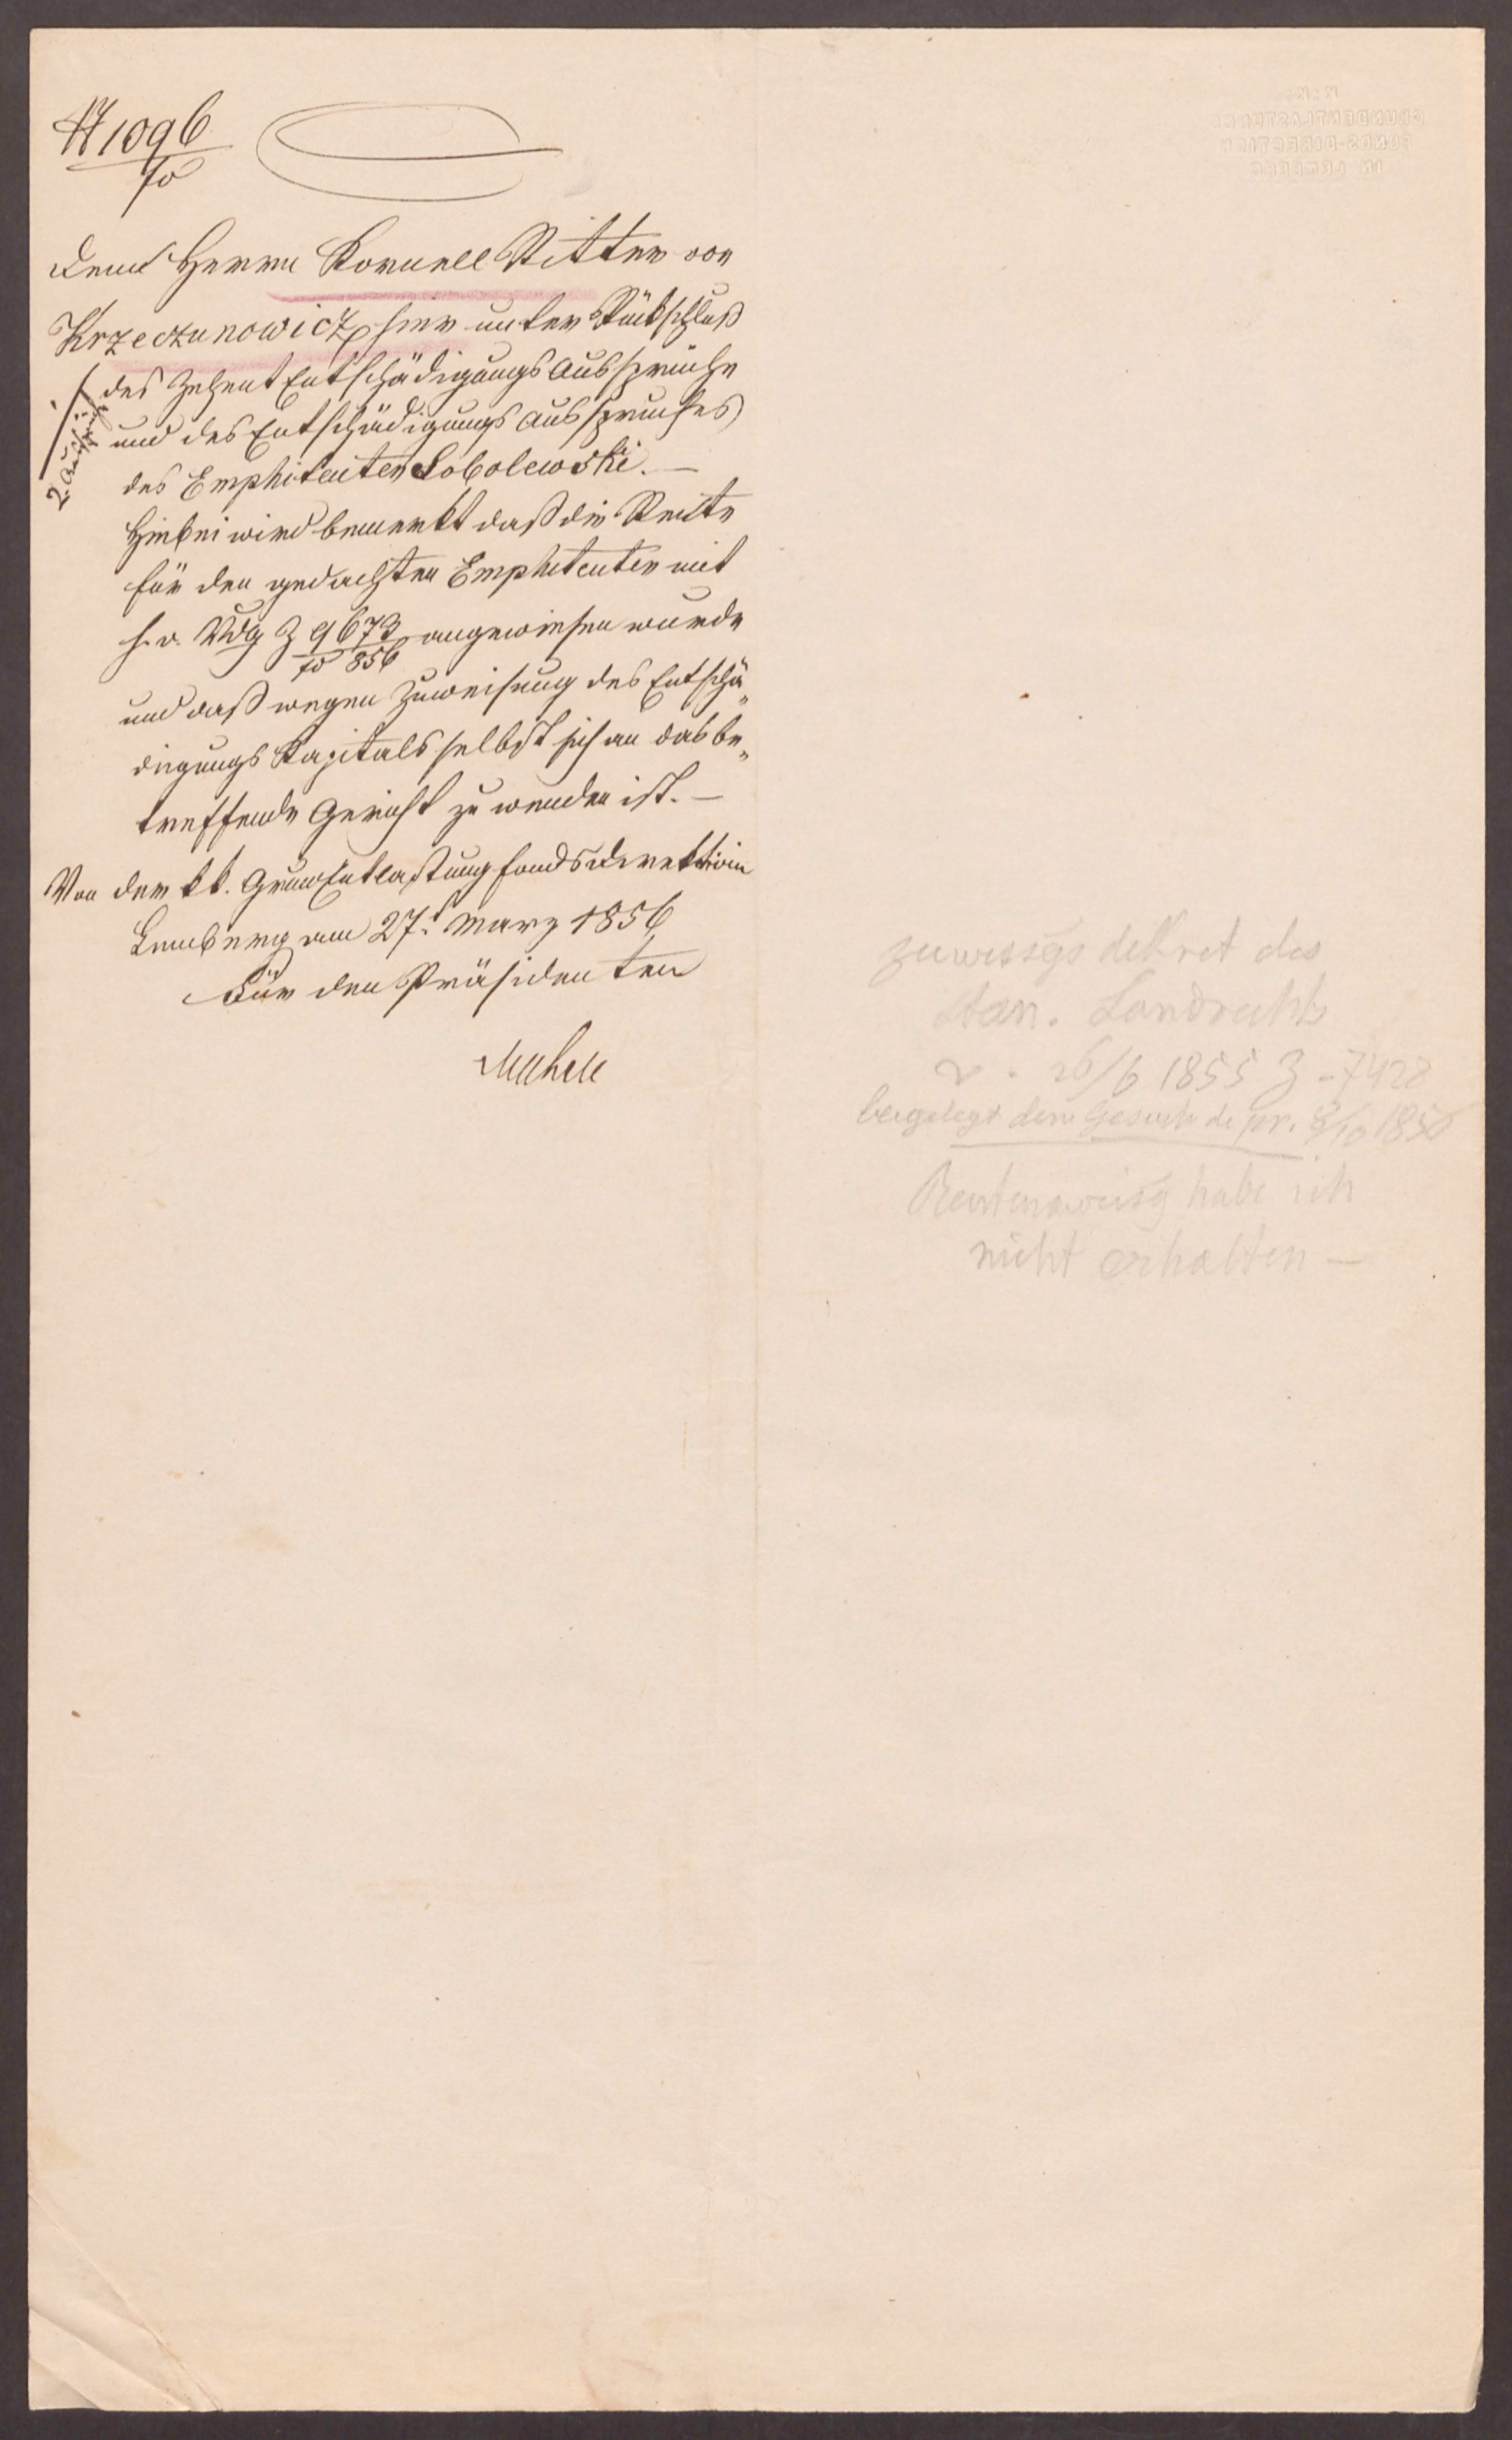 1096
fo
Dem Herrn Kornell Ritter von
Krzeczunowicz hier unter Rückschluß
des Zehent Entschädigungs Aussprüche
und des Entschädigungs Ausspruches
des Emphiteuten Sobolewski. —
Hiebei wird bemerkt daß die Rente
für den gedachten Emphiteuten mit
h. o. Vdg Z 9673 angewiesen wurde
fo 856
und daß wegen Zuweisung des Entschä„
digungs Kapitals selbst sich an das be„
treffende Gericht zu wenden ist. —
Von der kk. GrundEntlastungsfondsdirektion
Lemberg am 27t März 1856
Für den Präsidenten
K: K:
GRUNDENTLASTUNGS
FONDS-DIRECTION
IN LEMBERG
Zuweisgs dekret des
Stan. Landrechts
v. 26/6 1855 Z - 7428
beigelegt dem Gesuch de pr. 8/10 1850
Rentenanweisg habe ich
nicht erhalten —